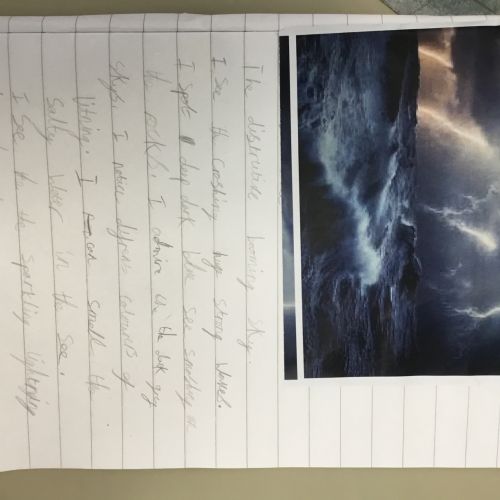 The distrucktive booming sky.
I see the crashing huge strong waves.
I spot deep dark blue see smashing
the rocks. I admire the dark grey
skys. I notice difrent colours of
litning. I can smell the
Salty Water in the see.
I See the the sparkling lightning